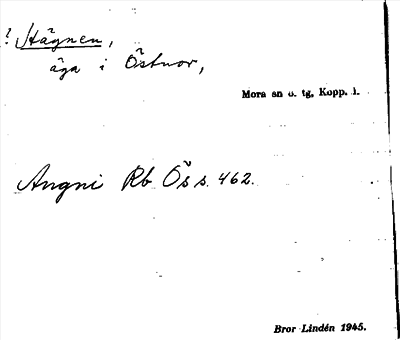 ? Hägnen,
äga i Östnor,
Mora sn o. tg, Kopp. l.
Angni Rb Ös s. 462.
Bror Lindén 1945.